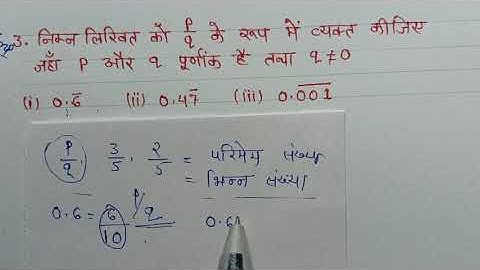 3. निम्न लिखित को p/q के रूप में व्यक्त कीजिए
जहाँ P और q पूर्णांक है तथा q ≠ 0
(i) 0.6̅ (ii) 0.47̅ (iii) 0.0̅0̅1̅
p/q, 3/5, 2/5 = परिमेय संख्या
= भिन्न संख्या
0.6 = 6/10 P/q 0.6